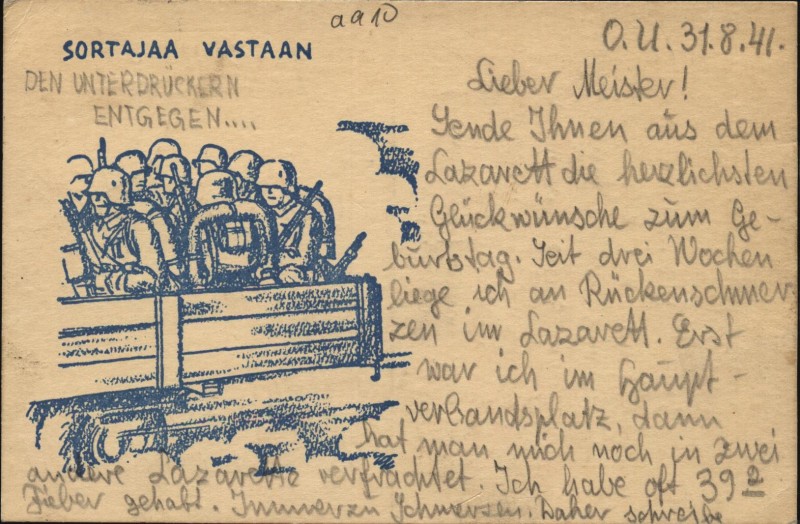 a a 10
SORTAJAA VASTAAN
DEN UNTERDRÜCKERN
ENTGEGEN....
O.U. 31.8.41.
Lieber Meister!
Sende Ihnen aus dem
Lazarett die herzlichsten
Glückwünsche zum Ge-
burtstag. Seit drei Wochen
liege ich an Rückenschmer-
zen im Lazarett. Erst
war ich im Haupt-
verbandsplatz, dann
hat man mich noch in zwei
andere Lazarette verfrachtet. Ich habe oft 39 2
Fieber gehabt. Immerzu Schmerzen. Daher schreibe